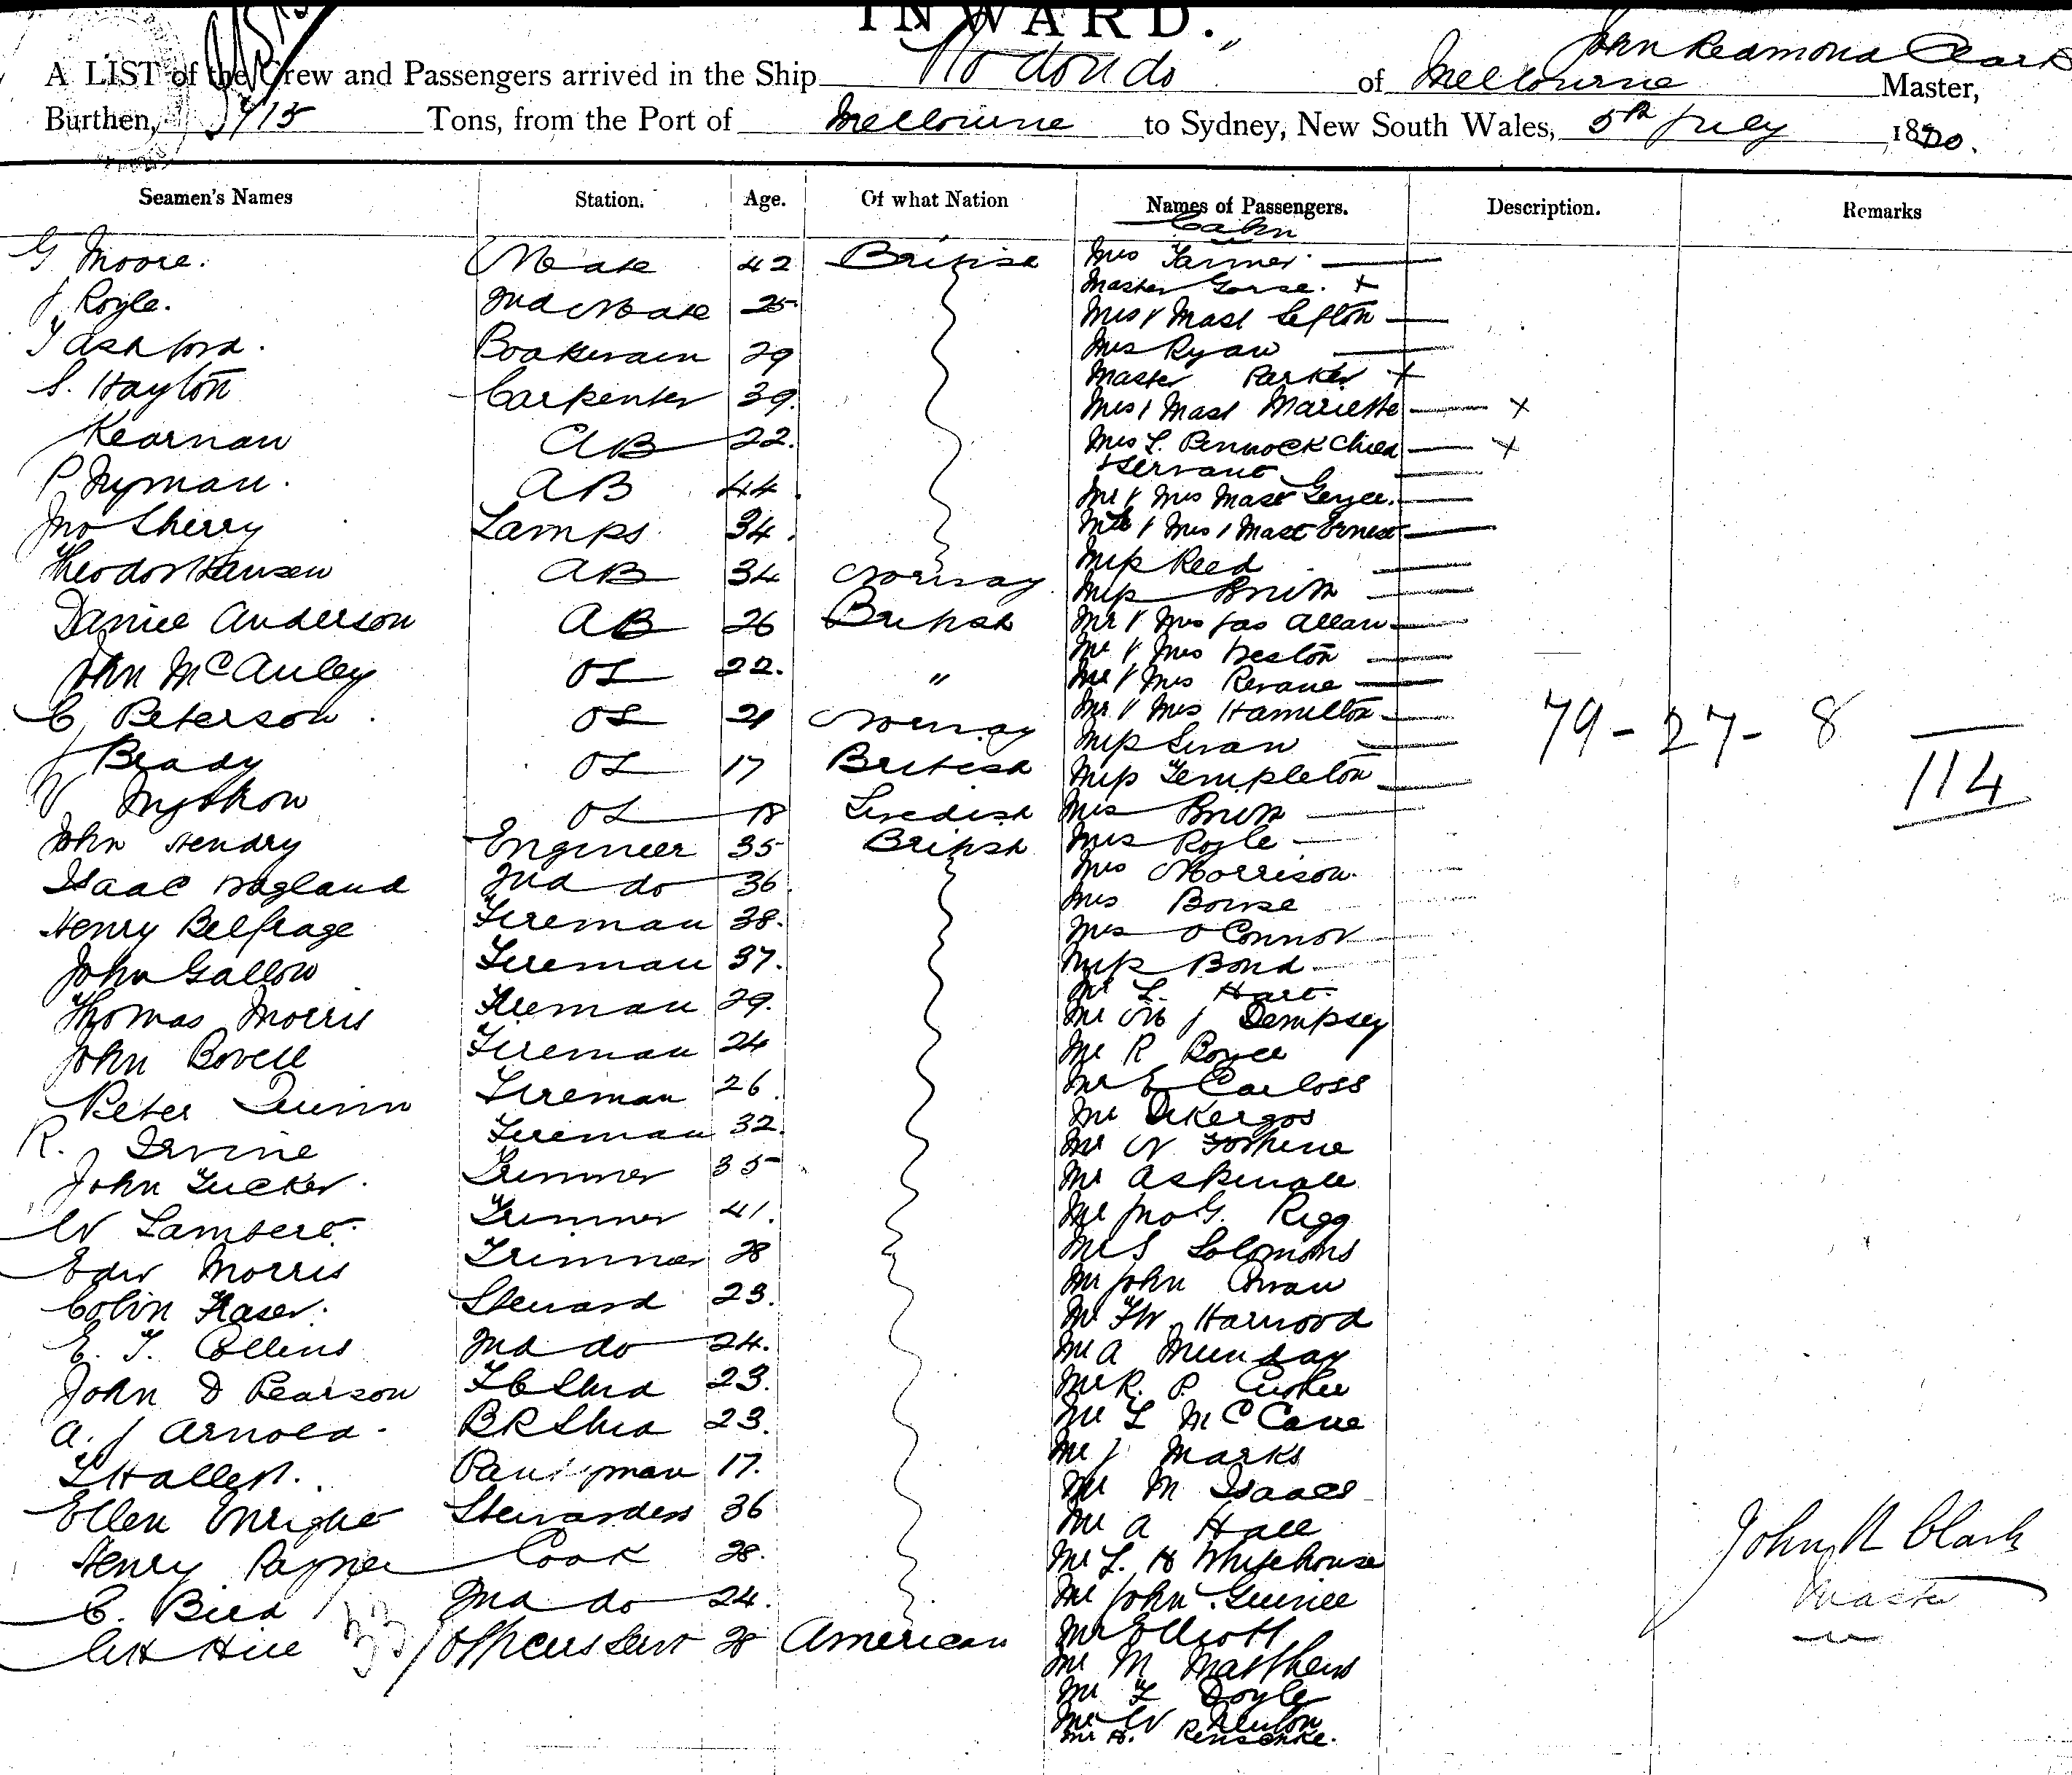 INWARD.
A LIST of the Crew and Passengers arrived in the Ship "Rodondo" of Melbourne John Redmond Clark Master,
Burthen, Tons, from the Port of Melbourne to Sydney, New South Wales, 5th July 1890.
Seamen's Names Station. Age. Of what Nation Names of Passengers. Description. Remarks
Cabin
G Moore. Mate 42 British Mrs Farmer
Master Gorse. x
J Royle. 2nd Mate 25 Mrs & Mast Sefton
T Ashford. Boatswain 29 Mrs Ryan
S. Hayton Carpenter 39. Master Parker x
Mrs & Mast Mariette x
Kearnan AB 22. Mrs L. Pennock Child x
& Servant
P Nyman. AB 44. Mr & Mrs Mast
Jno Sherry Lamps 34. & Mrs & Mast Ernest
Theodor Hansen AB 34 Norway Miss Reed
Miss Britt
Daniel Anderson AB 26 British Mr & Mrs Jas Allan
John McAuley OS 22. " Mr & Mrs Weston
Mr & Mrs
C Peterson. OS 21 Norway Mr & Mrs Hamilton
Miss Swan
J Brady OS 17 British Miss Templeton
79 - 27 - 8
114
OS 18 Swedish Mrs Britt
John Hendry Engineer 35 British Mrs Royle
Isaac Wagland 2nd do 36. Mrs Morrison
Mrs Bowse
Henry Belfrage Fireman 38. Mrs O'Connor
John Gallow Fireman 37. Miss Bond
Mr L. Hart
Thomas Morris Fireman 29. Mr W J Dempsey
John Bovell Fireman 24 Mr R Boyce
Peter Quinn Fireman 26. Mr E Carloss
Mr
R. Irvine Fireman 32. Mr W
John Tucker. Trimmer 35 Mr Aspinall
W Lambert. Trimmer 41. Mr Jno G. Rigg
Edw Morris Trimmer 28 Mr S Solomons
Colin Fraser. Steward 23. Mr John Cowan
Mr F W. Harwood
E. T. Collins 2nd do 24. Mr A Munday
John D Pearson F C Stwd 23. Mr R. P.
A. J Arnold. B R Stwd 23. Mr L McCane
Mr J Marks
T Hallett. Pantryman 17. Mr M Isaacs
Ellen Enright Stewardess 36 Mr A Hall
Henry Payne Cook 28. Mr L. H Whitehouse
C. Bird 2nd do 24. Mr John Guinee
John R Clark
Master
33
C H Hill Officers Servt 28 American Mr Elliott
Mr M Matthews
Mr F Doyle
Mr W Newton
Mr H. Renschke.